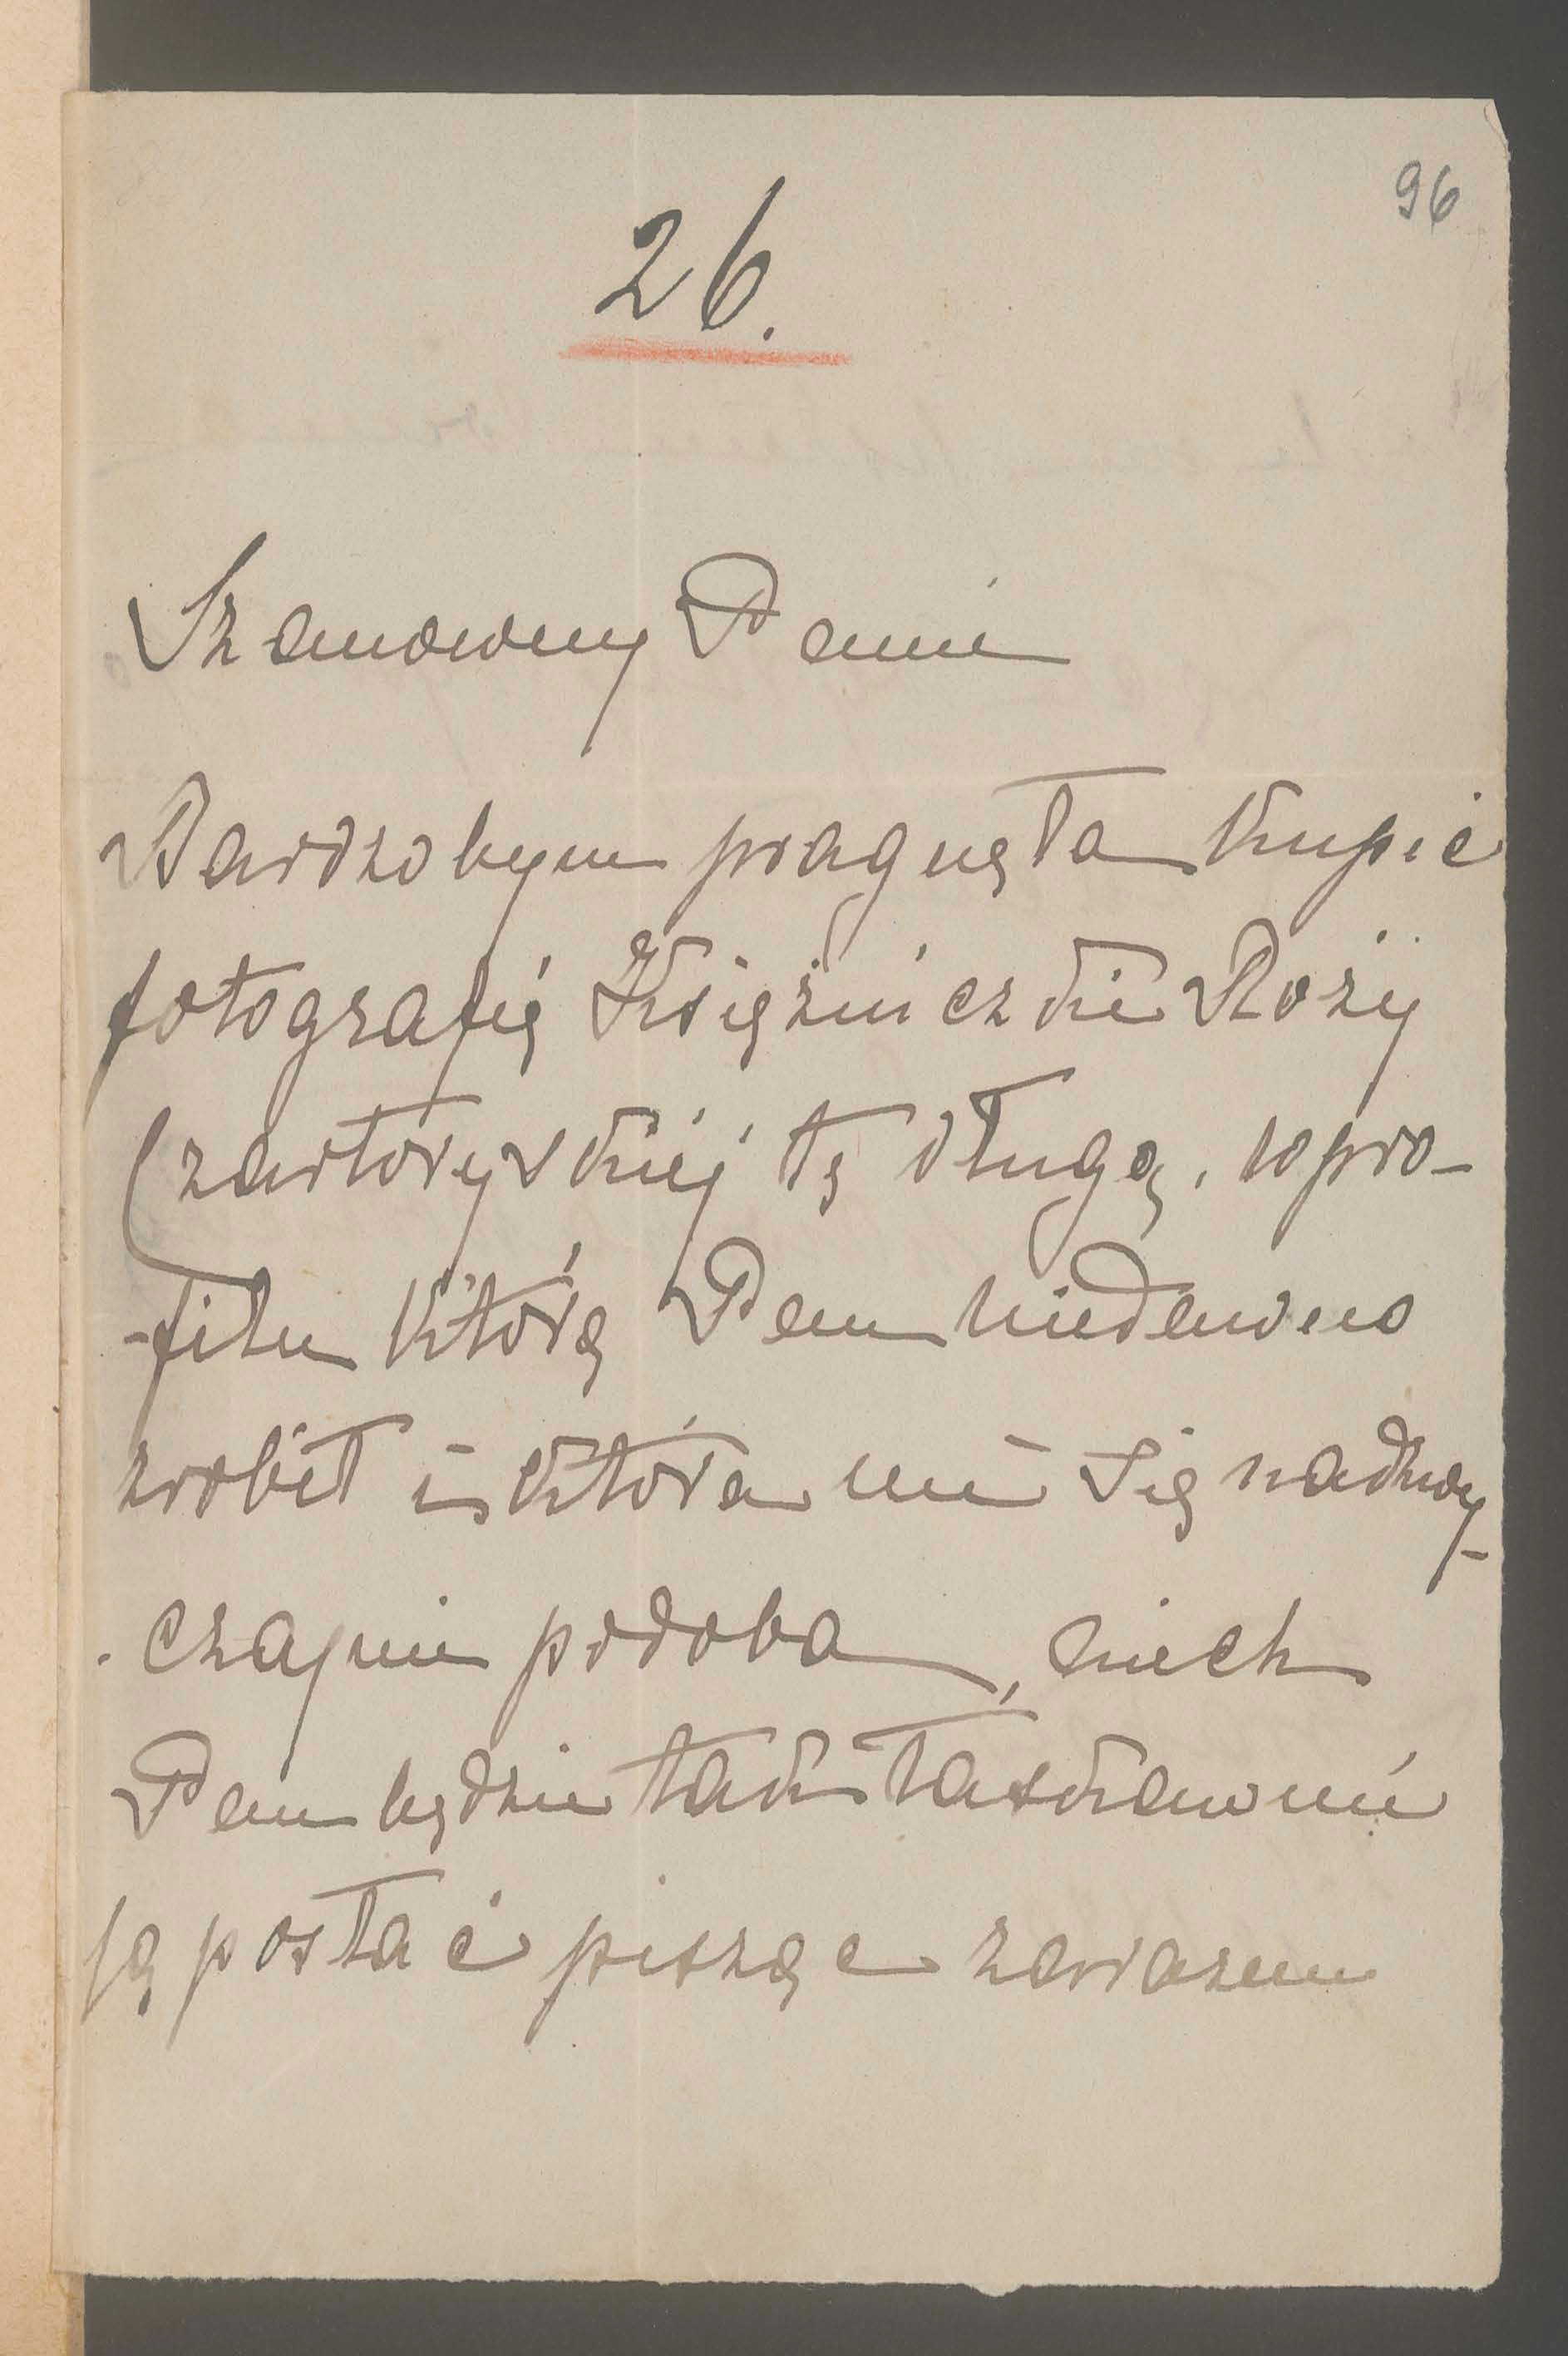 96
26.
Szanowny Panie
Bardzobym pragnęła kupić
fotografię Księżniczki Róży
Czartoryskiéj tę długą, w pro-
-filu którą Pan niedawno
zrobił i która mi się nadzwy-
-czajnie podoba, niech
Pan będzie tak łaskaw mi
ją posłać pisząc zarazem